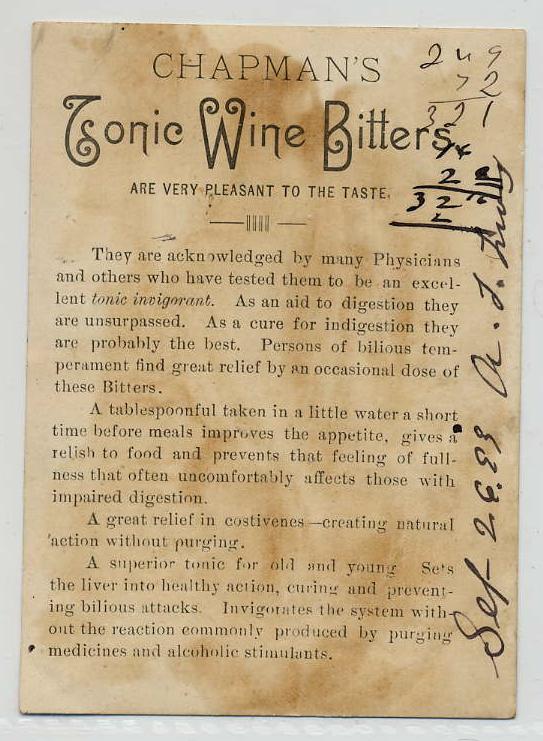 CHAPMAN'S
Tonic Wine Bitters
ARE VERY PLEASANT TO THE TASTE.
They are acknowledged by many Physicians
and others who have tested them to be an excel-
lent tonic invigorant. As an aid to digestion they
are unsurpassed. As a cure for indigestion they
are probably the best. Persons of bilious tem-
perament find great relief by an occasional dose of
these Bitters.
A tablespoonful taken in a little water a short
time before meals improves the appetite, gives a
relish to food and prevents that feeling of full-
ness that often uncomfortably affects those with
impaired digestion.
A great relief in costivenes —creating natural
action without purging.
A superior tonic for old and young Sets
the liver into healthy action, curing and prevent-
ing bilious attacks. Invigorates the system with-
out the reaction commonly produced by purging
medicines and alcoholic stimulants.
249
72
321